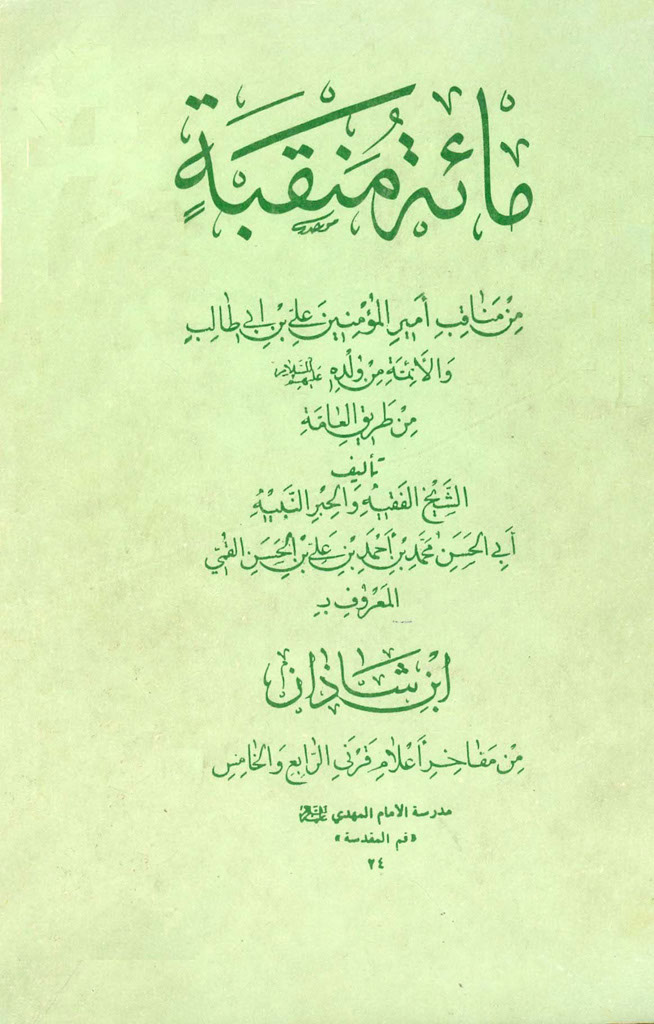 مائة مَنقبةٍ
مِنْ مَنَاقِبِ أَميرِ المُؤمِنينَ عَلِيِّ بْنِ اَبي طالِبٍ
وَالأَئِمَّةِ مِنْ وُلْدِهِ عَلَيْهِمُ السَّلَام
مِنْ طَريقِ العَامَّةِ
تأليف
الشَّيْخِ الفَقيهِ وَالحِبْرِ النَّبيهِ
أَبي الحَسَنِ مُحَمَّدِ بْنِ أَحْمَدَ بْنِ عَلِيِّ بْنِ الحَسَنِ القُمّي
المَعْرُوفِ بـ
ابْنِ شَاذَان
مِنْ مَفَاخِرِ أَعْلَامِ قَرْنَيِ الرَّابِعِ وَالخَامِسِ
مدرسة الامام المهدي
«قم المقدسة»
٢٤